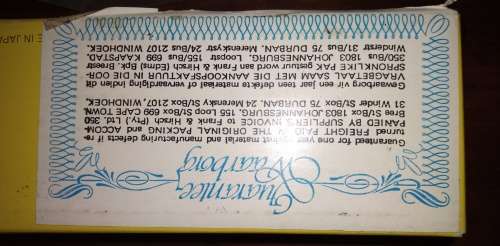 Guarantee
Waarborg
Guaranteed for one year against material and manufacturing defects if re-
turned FREIGHT PAID IN THE ORIGINAL PACKING and ACCOM-
PANIED BY SUPPLIER'S INVOICE to Frank & Hirsch (Pty.) Ltd. 350
Bree St/Box 1803 JOHANNESBURG. Loop 155 St/Box 699 CAPE TOWN
31 Winder St/Box 75 DURBAN. 24 Merensky St/Box 2107, WINDHOEK.
Gewaarborg vir een jaar teen defekte materiaal of vervaardiging indien dit
VRAGBETAAL SAAM MET DIE AANKOOPSFAKTUUR IN DIE OOR-
SPRONKLIKE PAK gestuur word aan Frank & Hirsch (Edms) Bpk. Breestr
350/Bus 1803 JOHANNESBURG, Loopstr. 155/Bus 699 KAAPSTAD.
Winderstr 31/Bus 75 DURBAN. Merenskystr 24/Bus 2107 WINDHOEK.
E IN JAPA